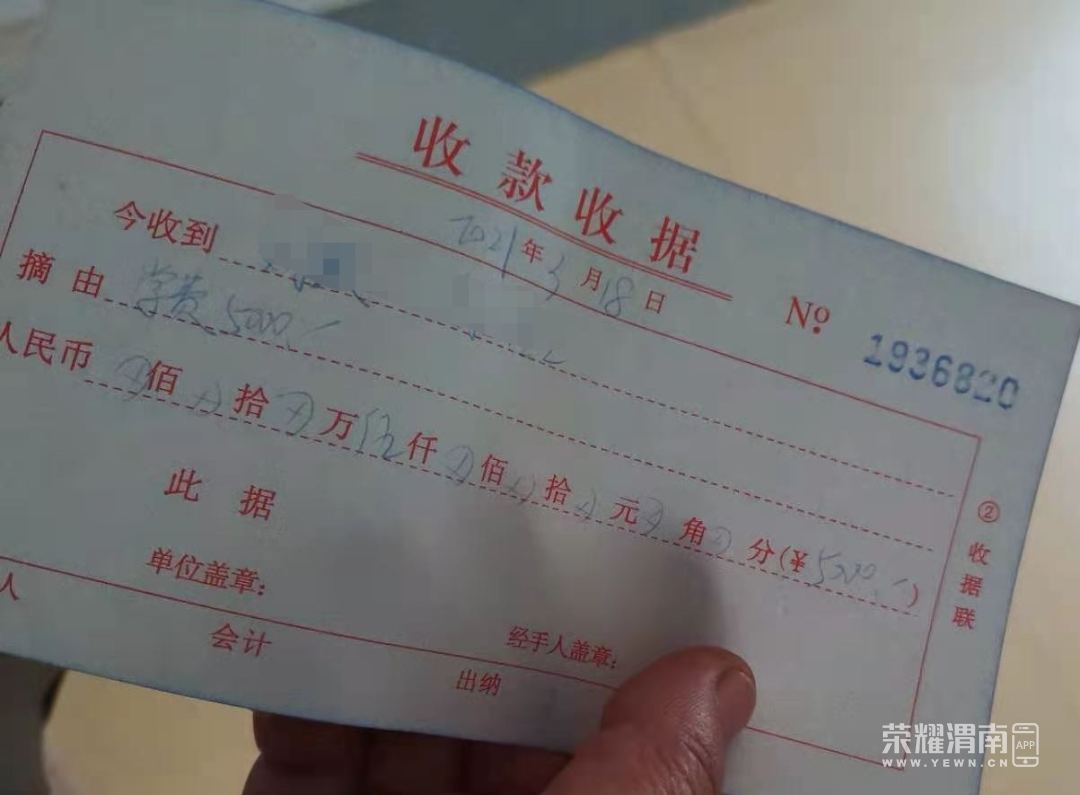 收款收据
2021年3月18日
No 1936820
今收到
摘由 学费 5000.-
人民币 佰 拾 万 伍 仟 佰 拾 元 角 分(¥ 5000.-)
此据
单位盖章:
经手人盖章:
人
会计
出纳
②收据联
荣耀渭南APP
WWW.YEWN.CN